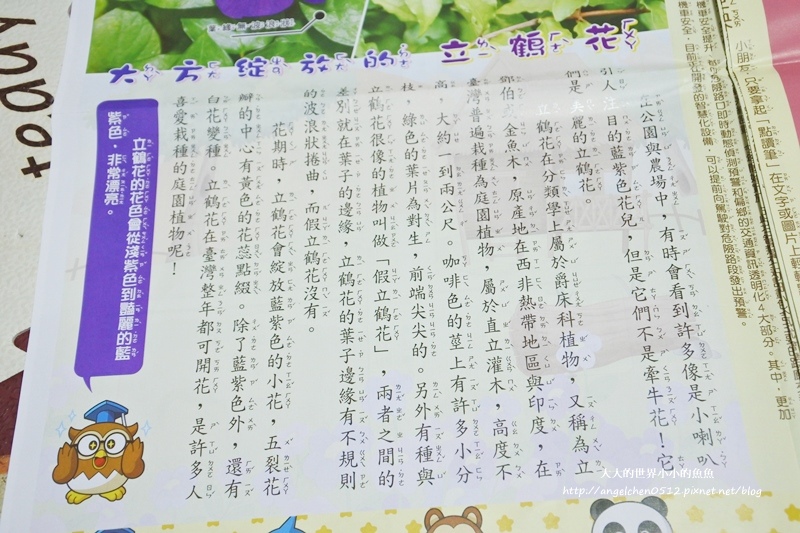 葉緣無波浪狀
大方綻放的立鶴花
在公園與農場中，有時會看到許多像是小喇叭
引人注目的藍紫色花兒，但是它們不是牽牛花！它
們是美麗的立鶴花。
立鶴花在分類學上屬於爵床科植物，又稱為立
鄧伯、金魚木，原產地在西非熱帶地區與印度，在
臺灣普遍栽種為庭園植物，屬於直立灌木，高度不
高，大約一到兩公尺。咖啡色的莖上有許多小分
枝，綠色的葉片為對生，前端尖尖的。另外有種與
立鶴花很像的植物叫做「假立鶴花」，兩者之間的
差別就在葉子的邊緣，立鶴花的葉子邊緣有不規則
的波浪狀捲曲，而假立鶴花沒有。
花期時，立鶴花會綻放藍紫色的小花，五裂花
瓣的中心有黃色的花蕊點綴。除了藍紫色外，還有
白花變種。立鶴花在臺灣整年都可開花，是許多人
喜愛栽種的庭園植物呢！
立鶴花的花色會從淺紫色到豔麗的藍
紫色，非常漂亮。
小朋友，只要拿起「點讀筆」在文字或圖片上輕
機車安全，目前正開發的智慧化設備，可以提前向駕駛對危險路段發出預警。
大大的世界小小的魚魚
http://angelchen0512.pixnet.net/blog